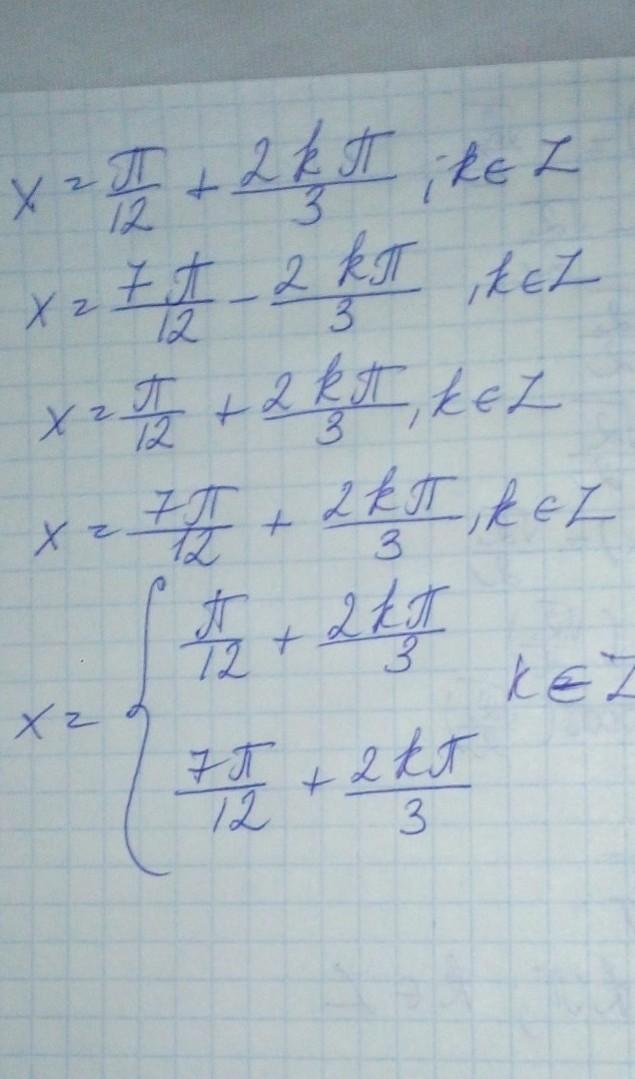 x = π/12 + 2kπ/3 ; k ∈ Z
x = 7π/12 - 2kπ/3 , k ∈ Z
x = π/12 + 2kπ/3 , k ∈ Z
x = 7π/12 + 2kπ/3 , k ∈ Z
x = { π/12 + 2kπ/3
7π/12 + 2kπ/3 k ∈ Z